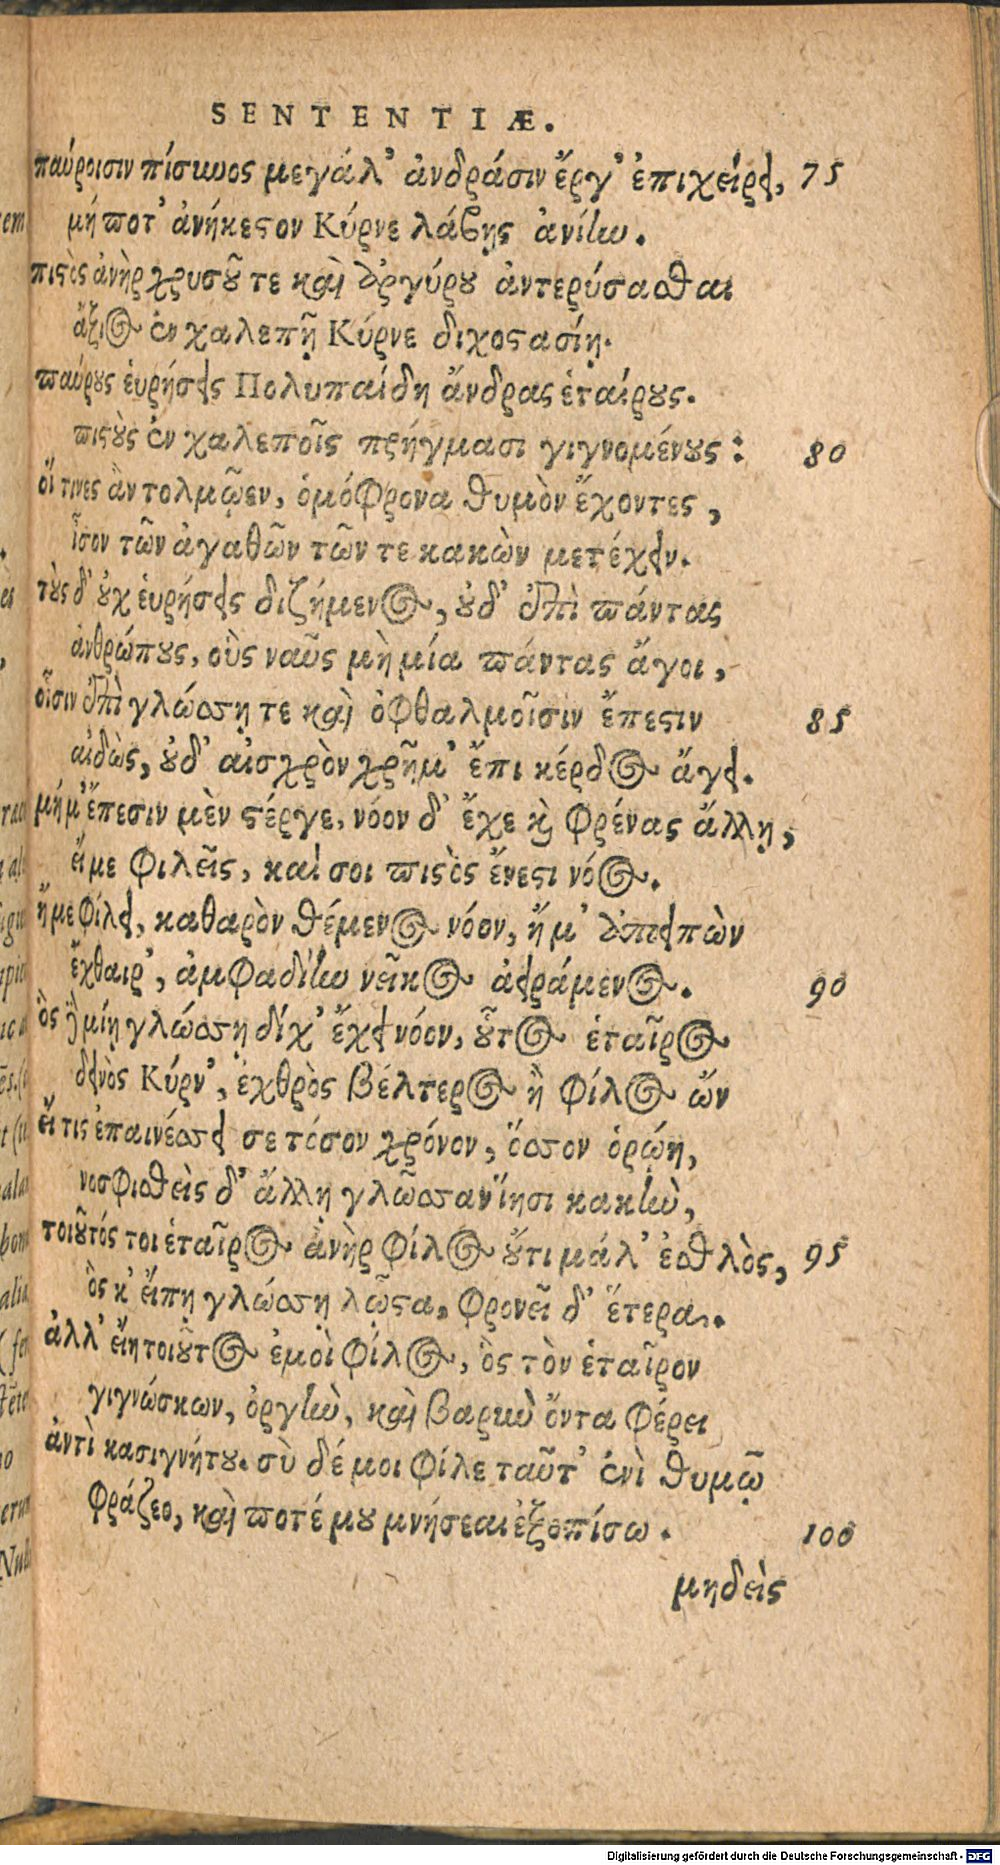 SENTENTIÆ.
παύροισιν πίσιωος μεγάλ’ ἀνδράσιν ἔργ’ ἐπιχείρει, 75
μή ποτ’ ἀνήκεστον Κύρνε λάβῃς ἀνίην.
πιστὸς ἀνὴρ χρυσοῦ τε καὶ ἀργύρου ἀντερύσασθαι
ἄξιος ἐν χαλεπῇ Κύρνε διχοστασίῃ.
παύρους εὑρήσεις Πολυπαίδη ἄνδρας ἑταίρους.
πιστοὺς ἐν χαλεποῖς πρήγμασι γιγνομένους: 80
οἵ τινες ἂν τολμῷεν, ὁμόφρονα θυμὸν ἔχοντες,
ἶσον τῶν ἀγαθῶν τῶν τε κακὼν μετέχειν.
τοὺς δ’ οὐχ εὑρήσεις διζήμενος, οὐδ’ ἐπὶ πάντας
ἀνθρώπους, οὓς ναῦς μὴ μία πάντας ἄγοι,
οἷσιν ἐπὶ γλώσσῃ τε καὶ ὀφθαλμοῖσιν ἔπεστιν 85
αἰδὼς, οὐδ’ αἰσχρὸν χρῆμ’ ἔπι κέρδος ἄγει.
μή μ’ ἔπεσιν μὲν στέργε, νόον δ’ ἔχε καὶ φρένας ἄλλῃ,
εἴ με φιλεῖς, καί σοι πιστὸς ἔνεστι νόος.
ἤ με φίλει, καθαρὸν θέμενος νόον, ἤ μ’ ἀποειπὼν
ἔχθαιρ’, ἀμφαδίην νεῖκος ἀειράμενος. 90
ὃς δὲ μίῃ γλώσσῃ δίχ’ ἔχει νόον, οὗτος ἑταῖρος
δεινὸς Κύρν’, ἐχθρὸς βέλτερος ἢ φίλος ὤν
εἴ τις ἐπαινέσσει σε τόσον χρόνον, ὅσσον ὁρῴη,
νοσφισθεὶς δ’ ἄλλῃ γλῶσσαν ἵησι κακὴν,
τοιοῦτός τοι ἑταῖρος ἀνὴρ φίλος οὔτι μάλ’ ἐσθλὸς, 95
ὃς κ’ εἴπῃ γλώσσῃ λῷστα, φρονεῖ δ’ ἕτερα.
ἀλλ’ εἴη τοιοῦτος ἐμοὶ φίλος, ὃς τὸν ἑταῖρον
γιγνώσκων, ὀργὴν, καὶ βαρὺν ὄντα φέρει
ἀντὶ κασιγνήτου. σὺ δέ μοι φίλε ταῦτ’ ἐνὶ θυμῷ
φράζεο, καὶ ποτέ μου μνήσεαι ἐξοπίσω. 100
μηδεὶς
Digitalisierung gefördert durch die Deutsche Forschungsgemeinschaft - DFG